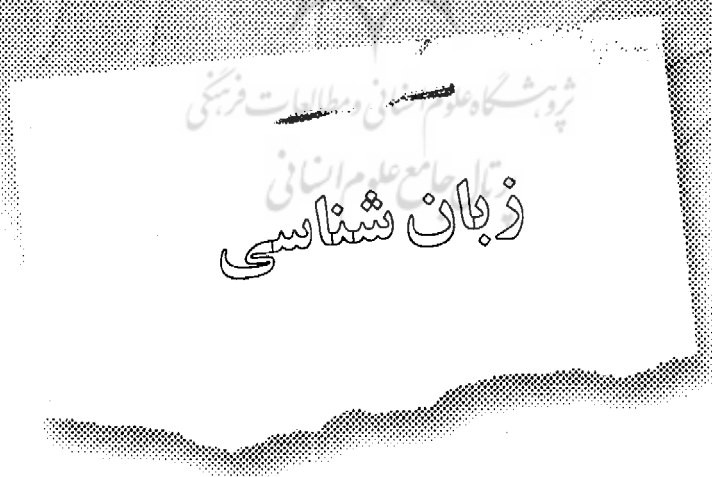 پژوهشگاه علوم انسانی و مطالعات فرهنگی
پرتال جامع علوم انسانی
زبان شناسی